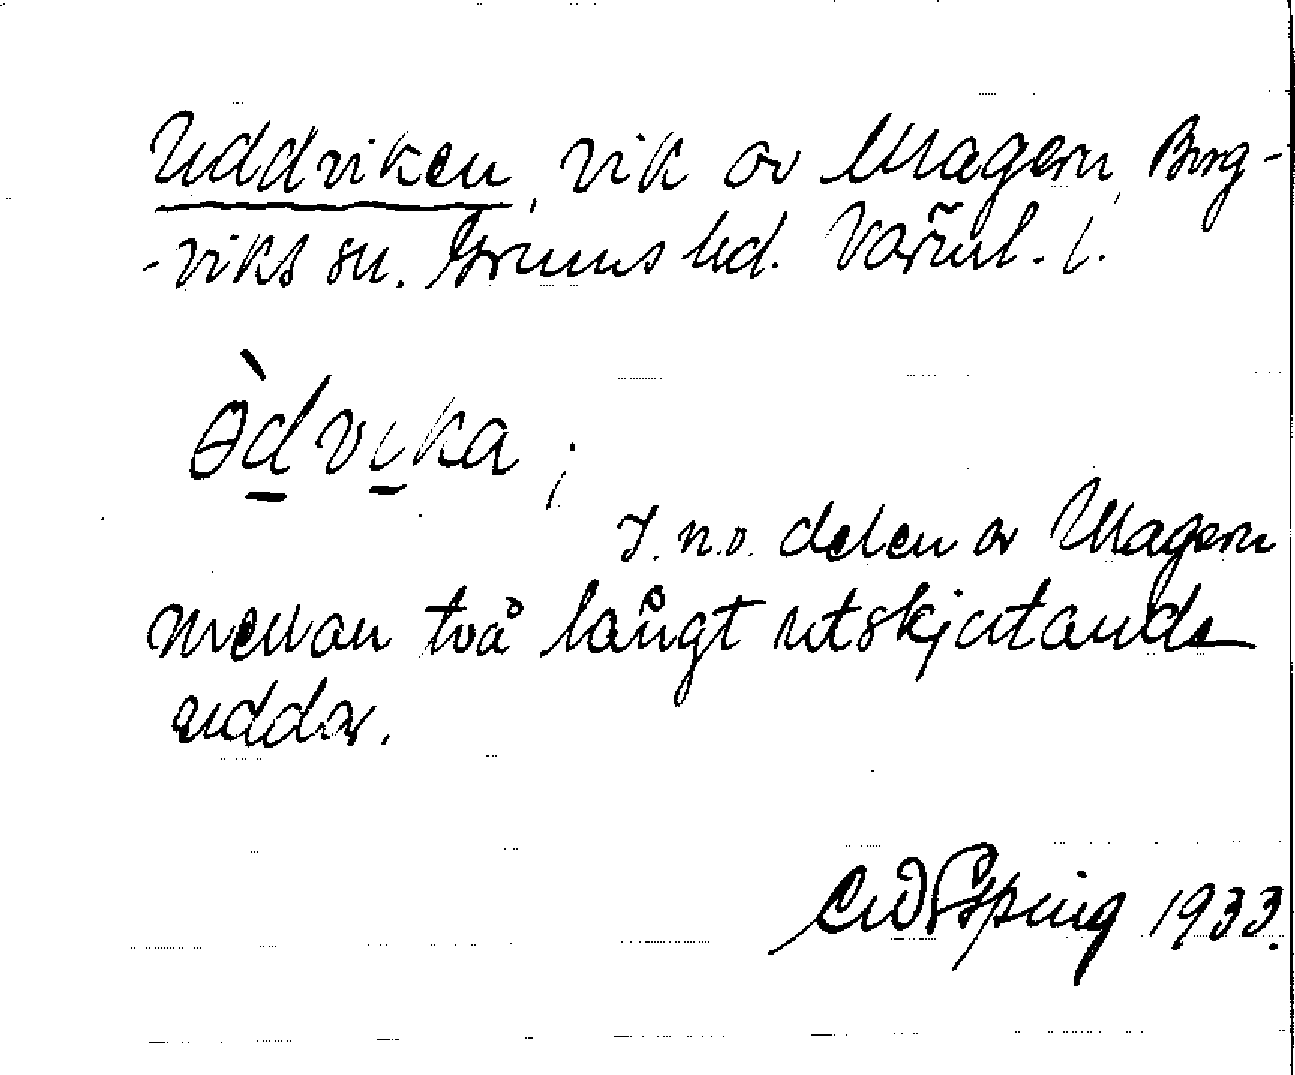 Uddviken, vik av Magern, Borg-
-viks sn. Grums hd. Värml. l.
ɵ̀dvika;
I n.o. delen av Magern
mellan två långt utskjutande
uddar.
1933.